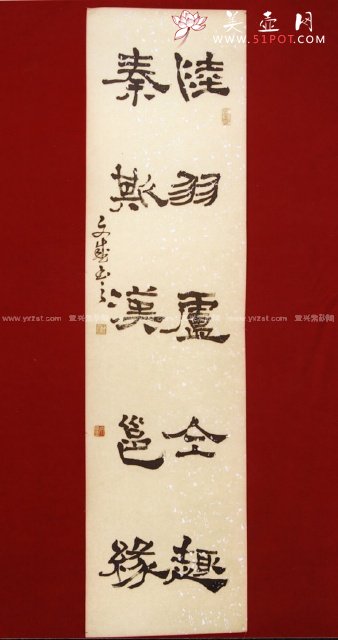 陸羽盧仝趣
秦斯漢邕緣
美壶网
www.51POT.com
www.yxzst.com 宜兴紫砂网
www.yxzst.com 宜兴紫砂网